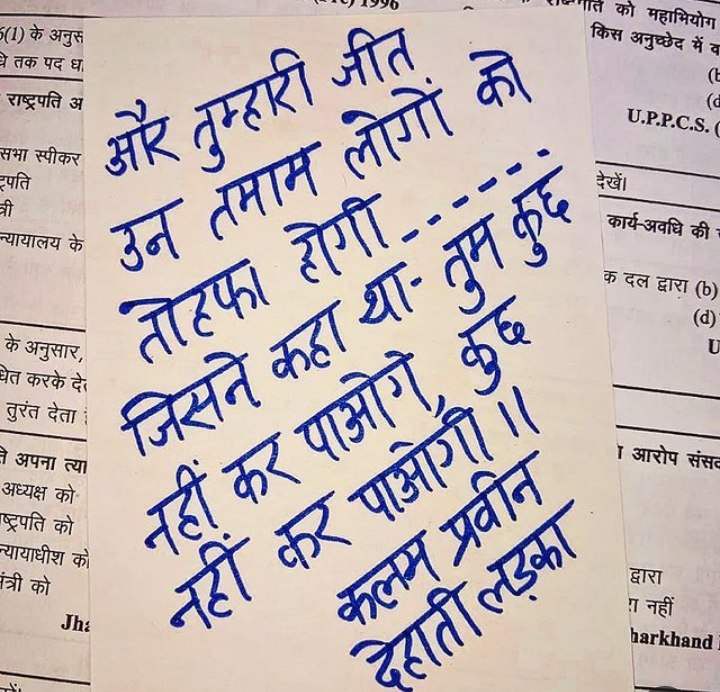 1996
5(1) के अनुस
तक पद धा
राष्ट्रपति अ
सभा स्पीकर
ट्रपति
त्री
न्यायालय के
के अनुसार,
धित करके दे
तुरंत देता
अपना त्या
अध्यक्ष को
ष्ट्रपति को
न्यायाधीश को
मंत्री को
Jha
और तुम्हारी जीत
उन तमाम लोगों को
तोहफा होगी......
जिसने कहा था- तुम कुछ
नहीं कर पाओगे, कुछ
नहीं कर पाओगी॥
कलम प्रवीन
देहाती लड़का
को महाभियोग
किस अनुच्छेद में व
U.P.P.C.S. (
देखें।
कार्य-अवधि की
क दल द्वारा (b)
(d)
U
आरोप संसद
द्वारा
नहीं
harkhand